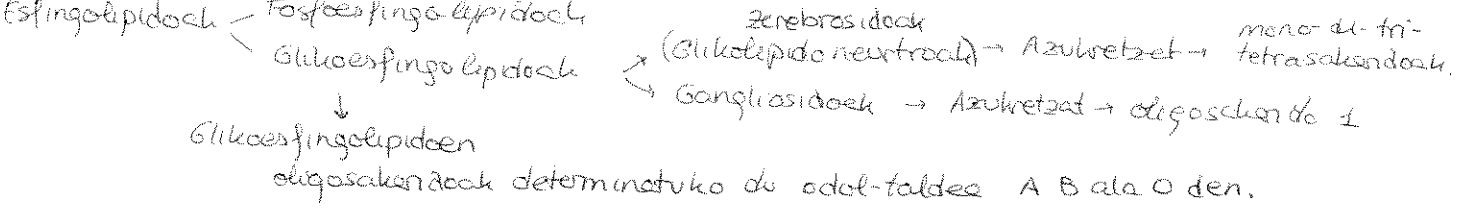 Esfingolipidoak Fosfoesfingolipidoak
Zerebrosidoak
Glikoesfingolipidoak (Glikolipido neutroak) → Azukretzat → mono-di-tri-
tetrasakaridoak.
Gangliosidoak → Azukretzat → oligosakarido 1
Glikoesfingolipidoen
oligosakaridoak determinatuko du odol-taldea A B ala O den.